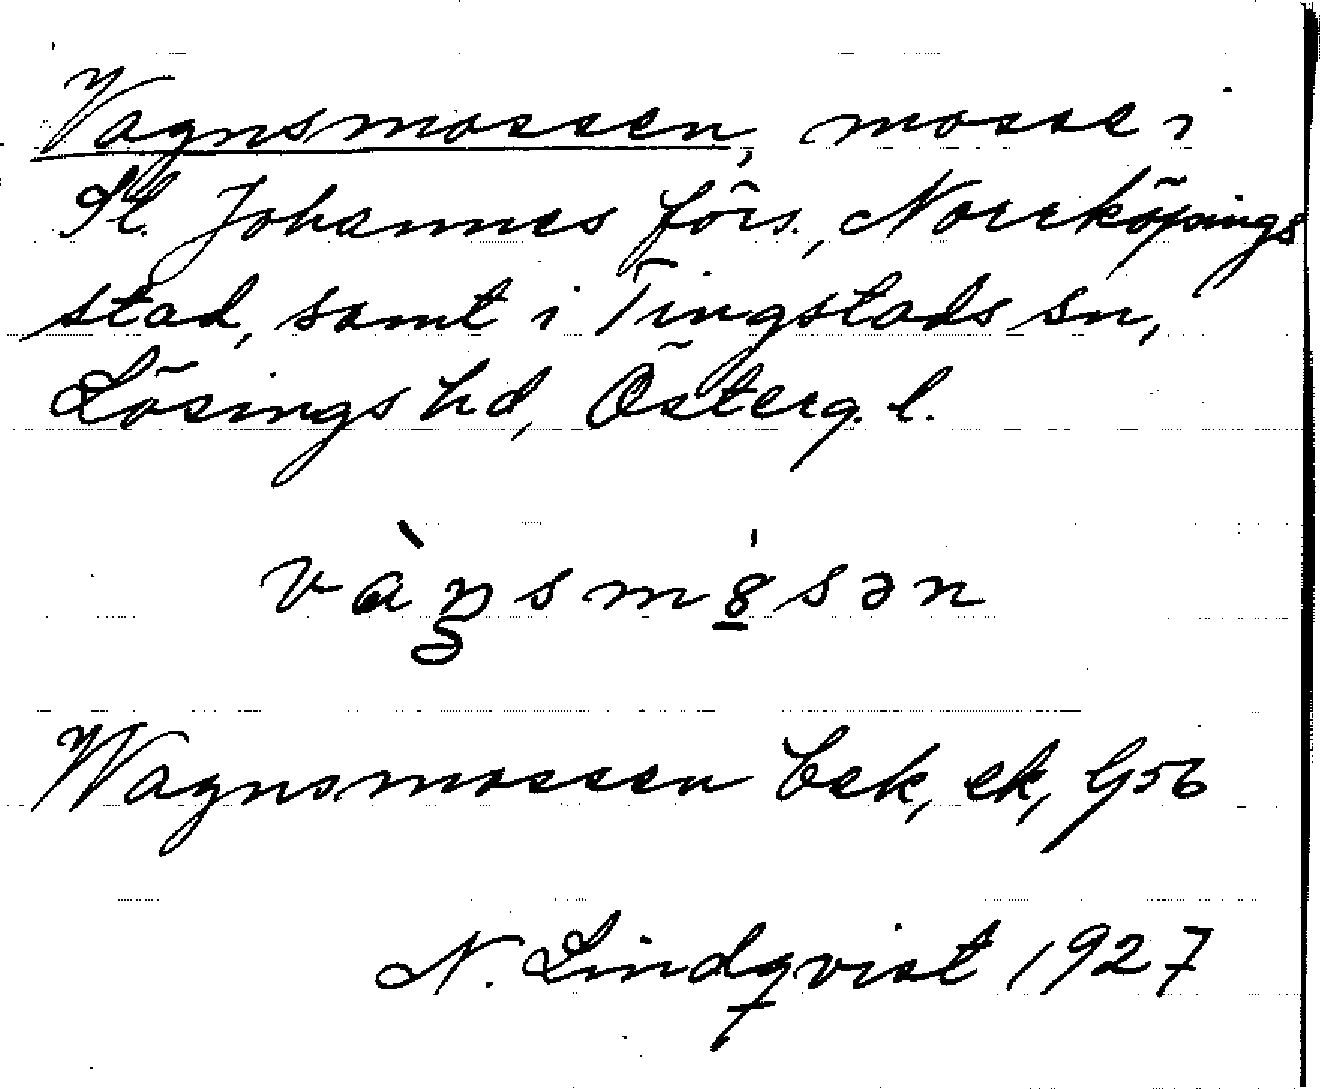 Vagnsmossen, mosse i
St. Johannes förs., Norrköpings
stad, samt i Tingstads sn,
Lösings hd, Österg. l.
Wagnsmossen bek, ek, G56
N. Lindqvist 1927